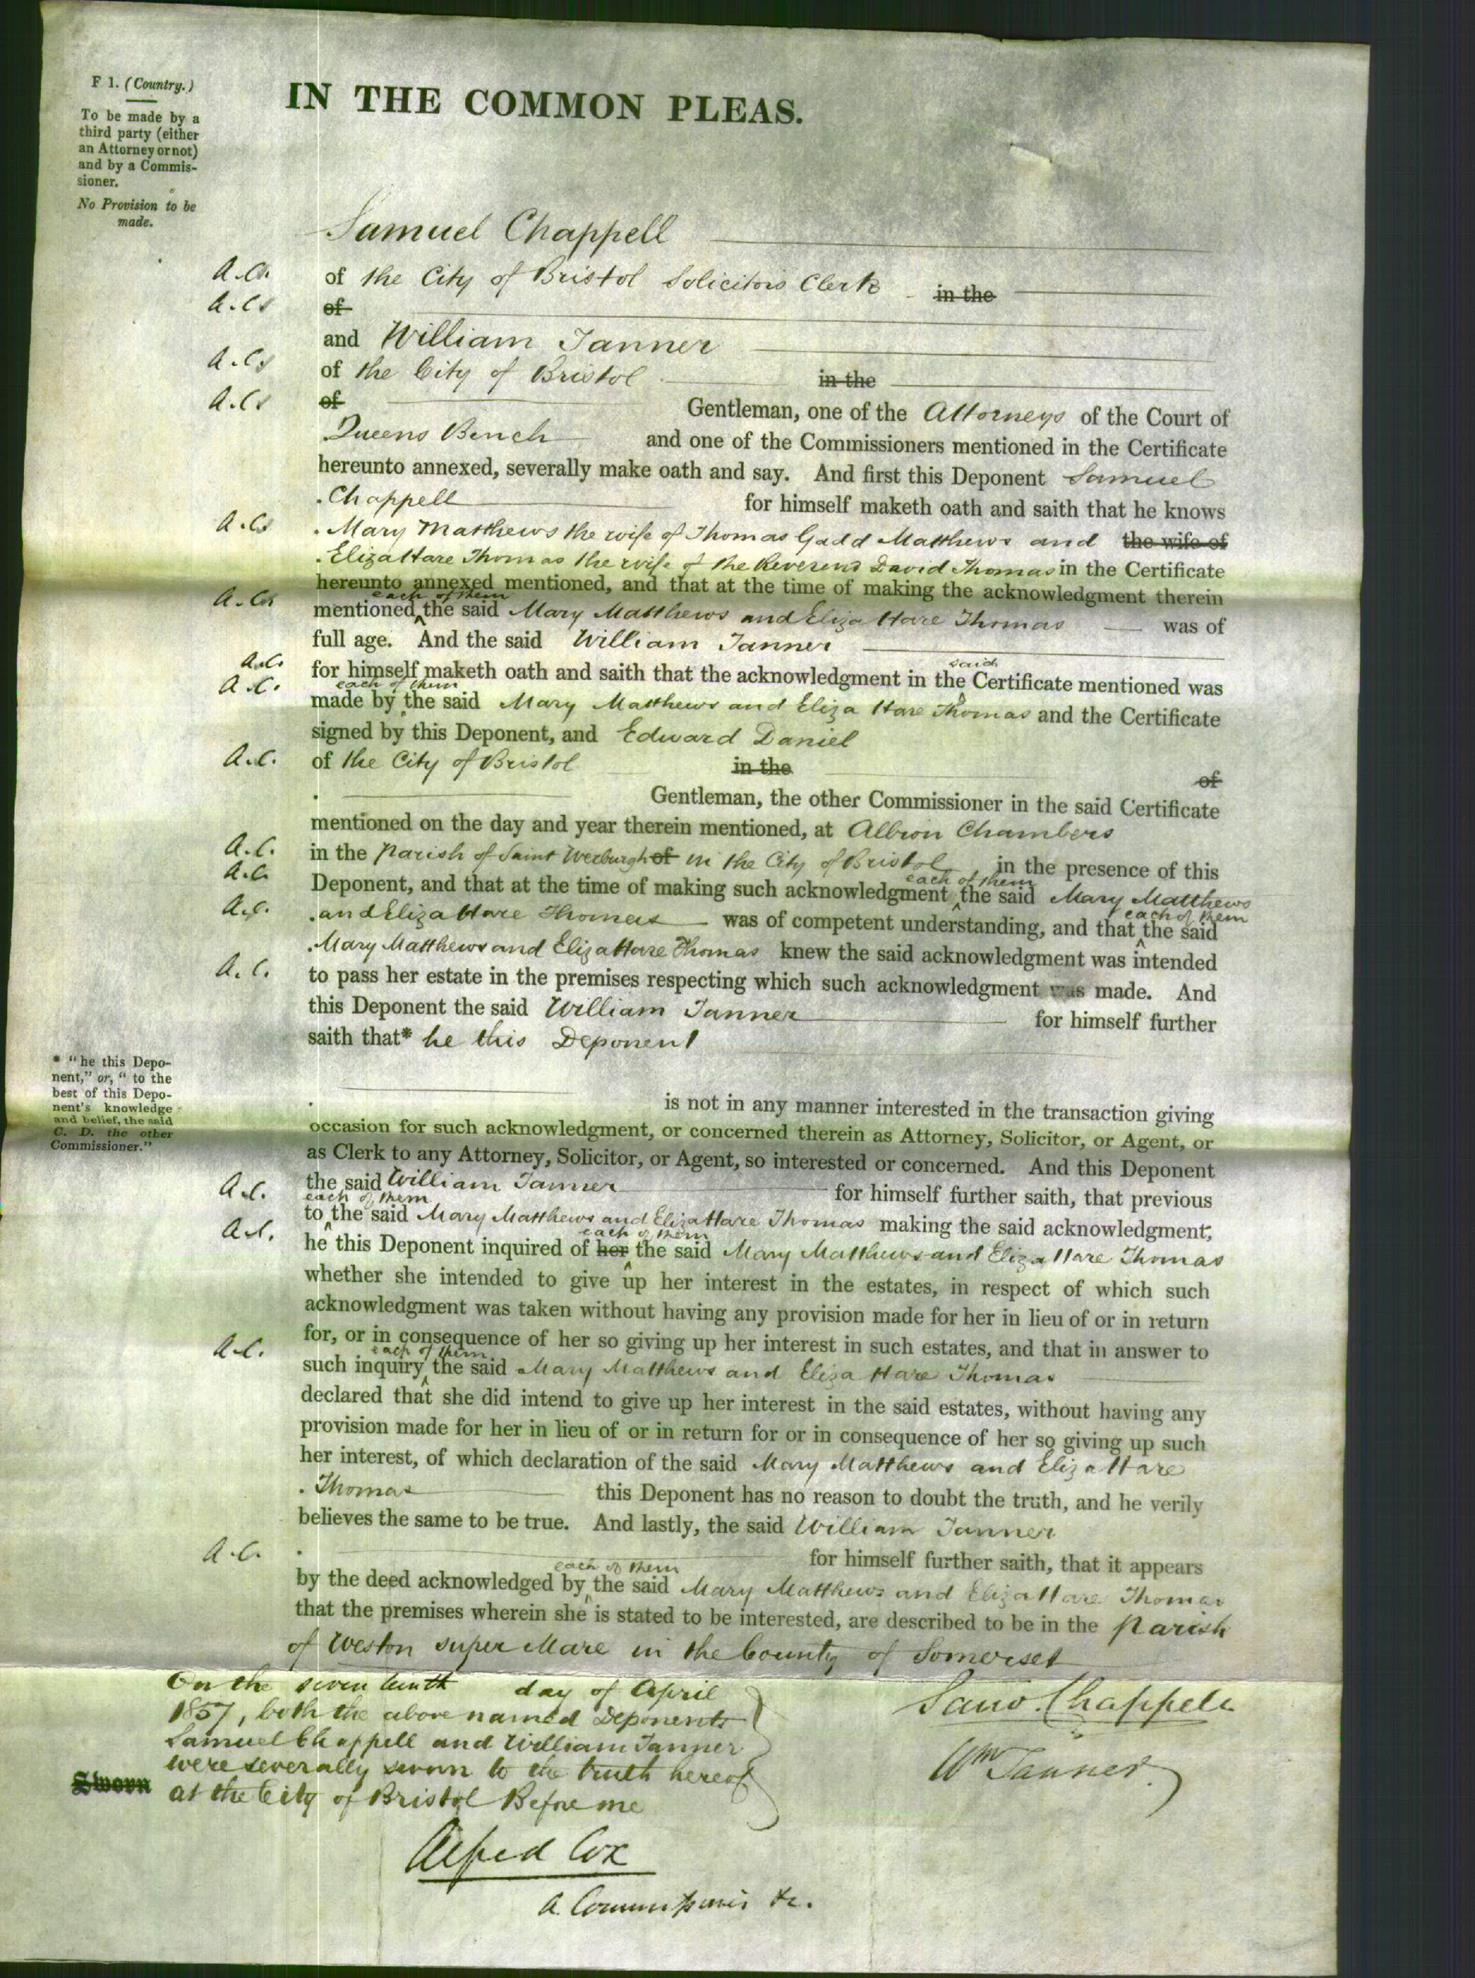 F 1. (Country.)
To be made by a
third party (either
an Attorney or not)
and by a Commis-
sioner.
No Provision to be
made.
IN THE COMMON PLEAS.
Samuel Chappell
A.C. of the City of Bristol Solicitors Clerk in the
A.C. of
and William Tanner
A.C. of the City of Bristol in the
A.C. of Gentleman, one of the Attorneys of the Court of
Queens Bench and one of the Commissioners mentioned in the Certificate
hereunto annexed, severally make oath and say. And first this Deponent Samuel
Chappell for himself maketh oath and saith that he knows
A.C. Mary Matthews the wife of Thomas Gadd Matthews and the wife of
Eliza Hare Thomas the wife of the Reverend David Thomas in the Certificate
hereunto annexed mentioned, and that at the time of making the acknowledgment therein
each of them
A.C. mentioned the said Mary Matthews and Eliza Hare Thomas was of
full age. And the said William Tanner
A.C. said
for himself maketh oath and saith that the acknowledgment in the Certificate mentioned was
A.C. each of them
made by the said Mary Matthews and Eliza Hare Thomas and the Certificate
signed by this Deponent, and Edward Daniel
A.C. of the City of Bristol in the of
Gentleman, the other Commissioner in the said Certificate
mentioned on the day and year therein mentioned, at Albion Chambers
A.C. in the Parish of Saint Werburgh of in the City of Bristol in the presence of this
A.C. each of them
Deponent, and that at the time of making such acknowledgment the said Mary Matthews
A.C. each of them
and Eliza Hare Thomas was of competent understanding, and that the said
Mary Matthews and Eliza Hare Thomas knew the said acknowledgment was intended
A.C. to pass her estate in the premises respecting which such acknowledgment was made. And
this Deponent the said William Tanner for himself further
saith that* he this Deponent
* "he this Depo-
nent," or, "to the
best of this Depo-
nent's knowledge
and belief, the said
C. D. the other
Commissioner."
is not in any manner interested in the transaction giving
occasion for such acknowledgment, or concerned therein as Attorney, Solicitor, or Agent, or
as Clerk to any Attorney, Solicitor, or Agent, so interested or concerned. And this Deponent
A.C. the said William Tanner for himself further saith, that previous
each of them
to the said Mary Matthews and Eliza Hare Thomas making the said acknowledgment,
A.C. each of them
he this Deponent inquired of her the said Mary Matthews and Eliza Hare Thomas
whether she intended to give up her interest in the estates, in respect of which such
acknowledgment was taken without having any provision made for her in lieu of or in return
for, or in consequence of her so giving up her interest in such estates, and that in answer to
A.C. each of them
such inquiry the said Mary Matthews and Eliza Hare Thomas
declared that she did intend to give up her interest in the said estates, without having any
provision made for her in lieu of or in return for or in consequence of her so giving up such
her interest, of which declaration of the said Mary Matthews and Eliza Hare
Thomas this Deponent has no reason to doubt the truth, and he verily
believes the same to be true. And lastly, the said William Tanner
A.C. for himself further saith, that it appears
each of them
by the deed acknowledged by the said Mary Matthews and Eliza Hare Thomas
that the premises wherein she is stated to be interested, are described to be in the Parish
of Weston super Mare in the County of Somerset
On the seventeenth day of April
1857, both the above named Deponents
Samuel Chappell and William Tanner
were severally sworn to the truth hereof
Sworn at the City of Bristol Before me
Saml. Chappell
Wm Tanner.
Alfred Cox
A Commissioner &c.